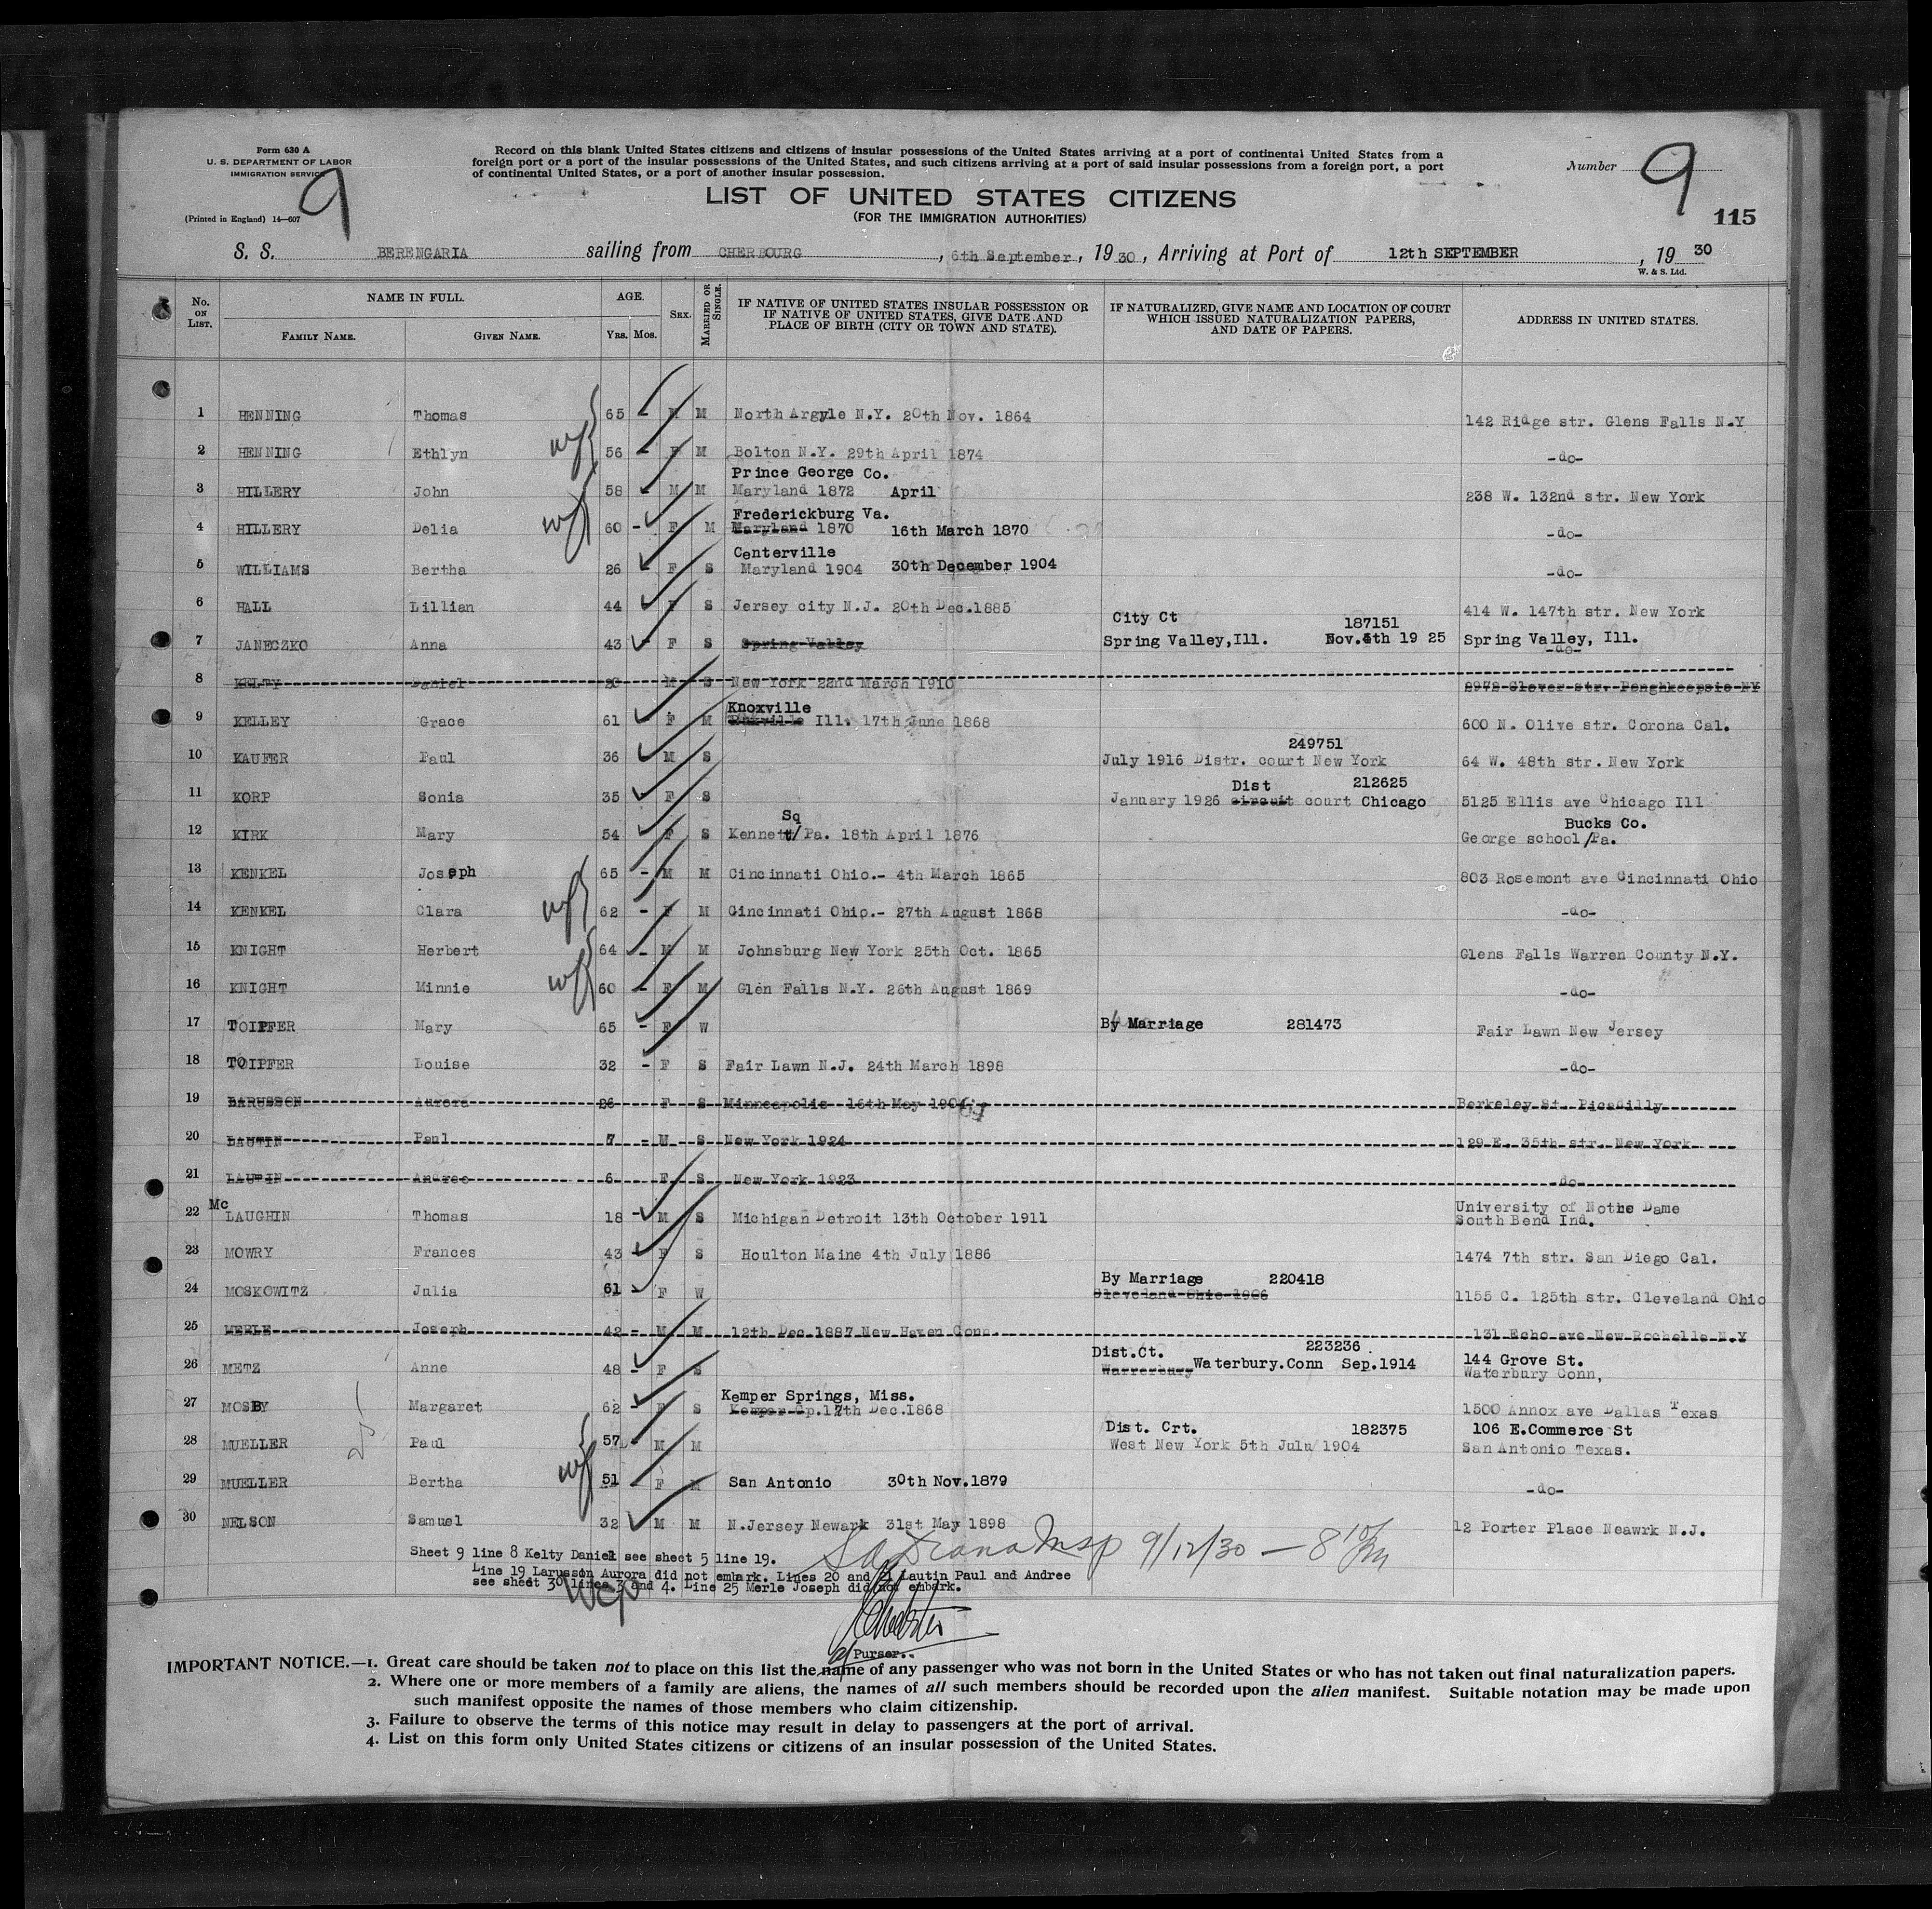 Form 630 A
U. S. DEPARTMENT OF LABOR
IMMIGRATION SERVICE
(Printed in England) 14—607
9
Record on this blank United States citizens and citizens of insular possessions of the United States arriving at a port of continental United States from a
foreign port or a port of the insular possessions of the United States, and such citizens arriving at a port of said insular possessions from a foreign port, a port
of continental United States, or a port of another insular possession.
Number 9
LIST OF UNITED STATES CITIZENS
(FOR THE IMMIGRATION AUTHORITIES)
115
S. S. BERENGARIA sailing from CHERBOURG, 6th September, 1930, Arriving at Port of 12th SEPTEMBER, 19 30
W. & S. Ltd.
No. ON LIST. NAME IN FULL. FAMILY NAME. GIVEN NAME. AGE. YRS. MOS. SEX. MARRIED OR SINGLE. IF NATIVE OF UNITED STATES INSULAR POSSESSION OR IF NATIVE OF UNITED STATES, GIVE DATE AND PLACE OF BIRTH (CITY OR TOWN AND STATE). IF NATURALIZED, GIVE NAME AND LOCATION OF COURT WHICH ISSUED NATURALIZATION PAPERS, AND DATE OF PAPERS. ADDRESS IN UNITED STATES.
1 HENNING Thomas 65 - M M North Argyle N.Y. 20th Nov. 1864 142 Ridge str. Glens Falls N.Y
2 HENNING Ethlyn 56 - F M Bolton N.Y. 29th April 1874 -do-
Prince George Co.
3 HILLERY John 58 M M Maryland 1872 April 238 W. 132nd str. New York
Frederickburg Va.
4 HILLERY Delia 60 - F M Maryland 1870 16th March 1870 -do-
Centerville
5 WILLIAMS Bertha 26 F S Maryland 1904 30th December 1904 -do-
6 HALL Lillian 44 F S Jersey city N.J. 20th Dec.1885 414 W. 147th str. New York
City Ct 187151
7 JANECZKO Anna 43 - F S Spring Valley Spring Valley,Ill. Nov.4th 19 25 Spring Valley, Ill.
-do-
8 KELTY Daniel 20 M S New York 22nd March 1910 Clover str. Poughkeepsie NY
Knoxville
9 KELLEY Grace 61 F M Ill. 17th June 1868 600 N. Olive str. Corona Cal.
249751
10 KAUFER Paul 36 M S July 1916 Distr. court New York 64 W. 48th str. New York
Dist 212625
11 KORP Sonia 35 F S January 1926 circuit court Chicago 5125 Ellis ave Chicago Ill
Sq Bucks Co.
12 KIRK Mary 54 F S Kennett/Pa. 18th April 1876 George school/Pa.
13 KENKEL Joseph 65 - M M Cincinnati Ohio.- 4th March 1865 803 Rosemont ave Cincinnati Ohio
14 KENKEL Clara 62 - F M Cincinnati Ohio.- 27th August 1868 -do-
15 KNIGHT Herbert 64 - M M Johnsburg New York 25th Oct. 1865 Glens Falls Warren County N.Y.
16 KNIGHT Minnie 60 - F M Glen Falls N.Y. 26th August 1869 -do-
17 TOIPFER Mary 65 - F W By Marriage 281473 Fair Lawn New Jersey
18 TOIPFER Louise 32 - F S Fair Lawn N.J. 24th March 1898 -do-
19 LARUSSON Aurora 26 F S Minneapolis 16th May 1904 Berkeley St. Picadilly
20 LAUTIN Paul 7 - M S New York 1924 129 E. 35th str. New York
21 LAUTIN Andree 6 F S New York 1923 -do-
22 Mc LAUGHIN Thomas 18 - M S Michigan Detroit 13th October 1911 University of Notre Dame
South Bend Ind.
23 MOWRY Frances 43 F S Houlton Maine 4th July 1886 1474 7th str. San Diego Cal.
By Marriage 220418
24 MOSKOWITZ Julia 61 F W Cleveland Ohio 1906 1155 C. 125th str. Cleveland Ohio
25 MERLE Joseph 42 - M M 12th Dec.1887 New Haven Conn. 131 Echo ave New Rochelle N.Y
Dist.Ct. 223236 144 Grove St.
26 METZ Anne 48 - F S Waterbury.Conn Sep.1914 Waterbury Conn,
Kemper Springs, Miss.
27 MOSBY Margaret 62 F S 17th Dec.1868 1500 Annox ave Dallas Texas
Dist. Crt. 182375 106 E.Commerce St
28 MUELLER Paul 57 - M M West New York 5th July 1904 San Antonio Texas.
29 MUELLER Bertha 51 F M San Antonio 30th Nov.1879 -do-
30 NELSON Samuel 32 M M N.Jersey Newark 31st May 1898 12 Porter Place Neawrk N.J.
Sheet 9 line 8 Kelty Daniel see sheet 5 line 19.
Line 19 Larusson Aurora did not embark. Lines 20 and 21 Lautin Paul and Andree
see sheet 30 lines 3 and 4. Line 25 Merle Joseph did not embark.
9/12/30
Purser.
IMPORTANT NOTICE.—1. Great care should be taken not to place on this list the name of any passenger who was not born in the United States or who has not taken out final naturalization papers.
2. Where one or more members of a family are aliens, the names of all such members should be recorded upon the alien manifest. Suitable notation may be made upon
such manifest opposite the names of those members who claim citizenship.
3. Failure to observe the terms of this notice may result in delay to passengers at the port of arrival.
4. List on this form only United States citizens or citizens of an insular possession of the United States.